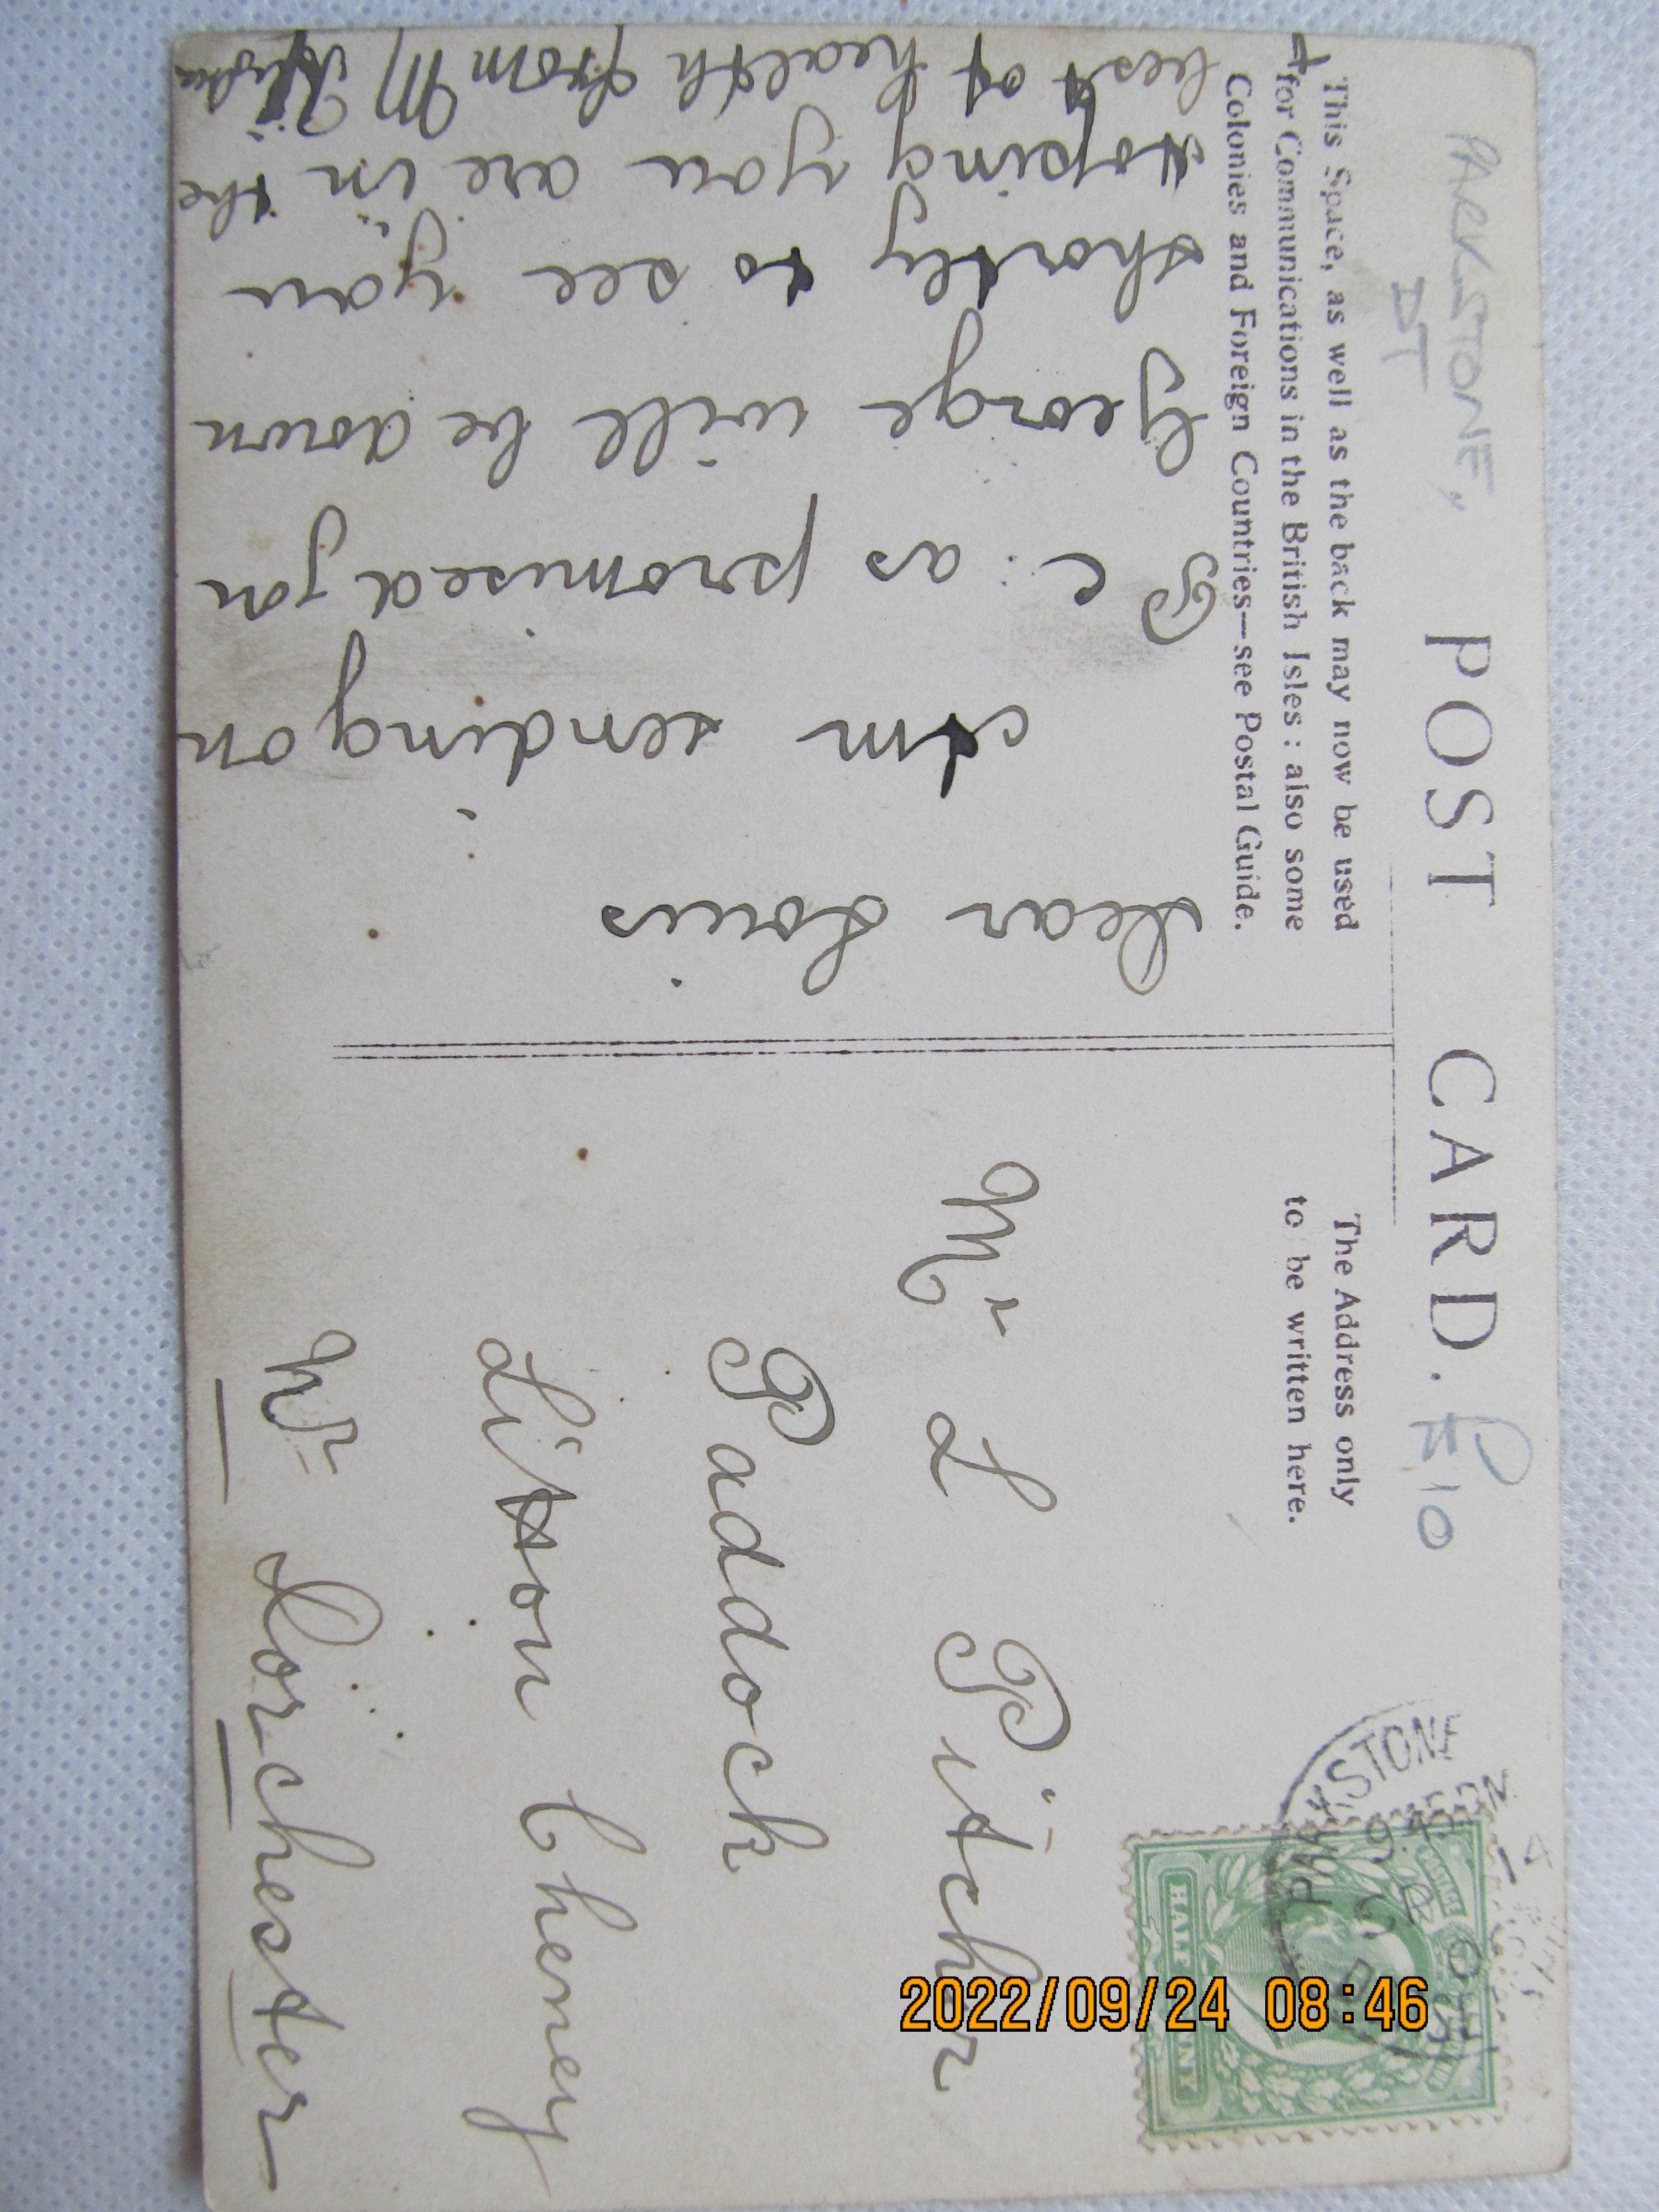 PARKSTONE,
DT
POST CARD.
£10
This Space, as well as the back may now be used
for Communications in the British Isles : also some
Colonies and Foreign Countries—see Postal Guide.
The Address only
to be written here.
Dear Louis
Am sending on
P C. as promised you
George will be down
shortly to see you
Hoping you are in the
best of health from M
Mr L Pitcher
Paddock
Litton Cheney
Nr Dorchester
PARKSTONE
HALF PENNY
2022/09/24 08:46